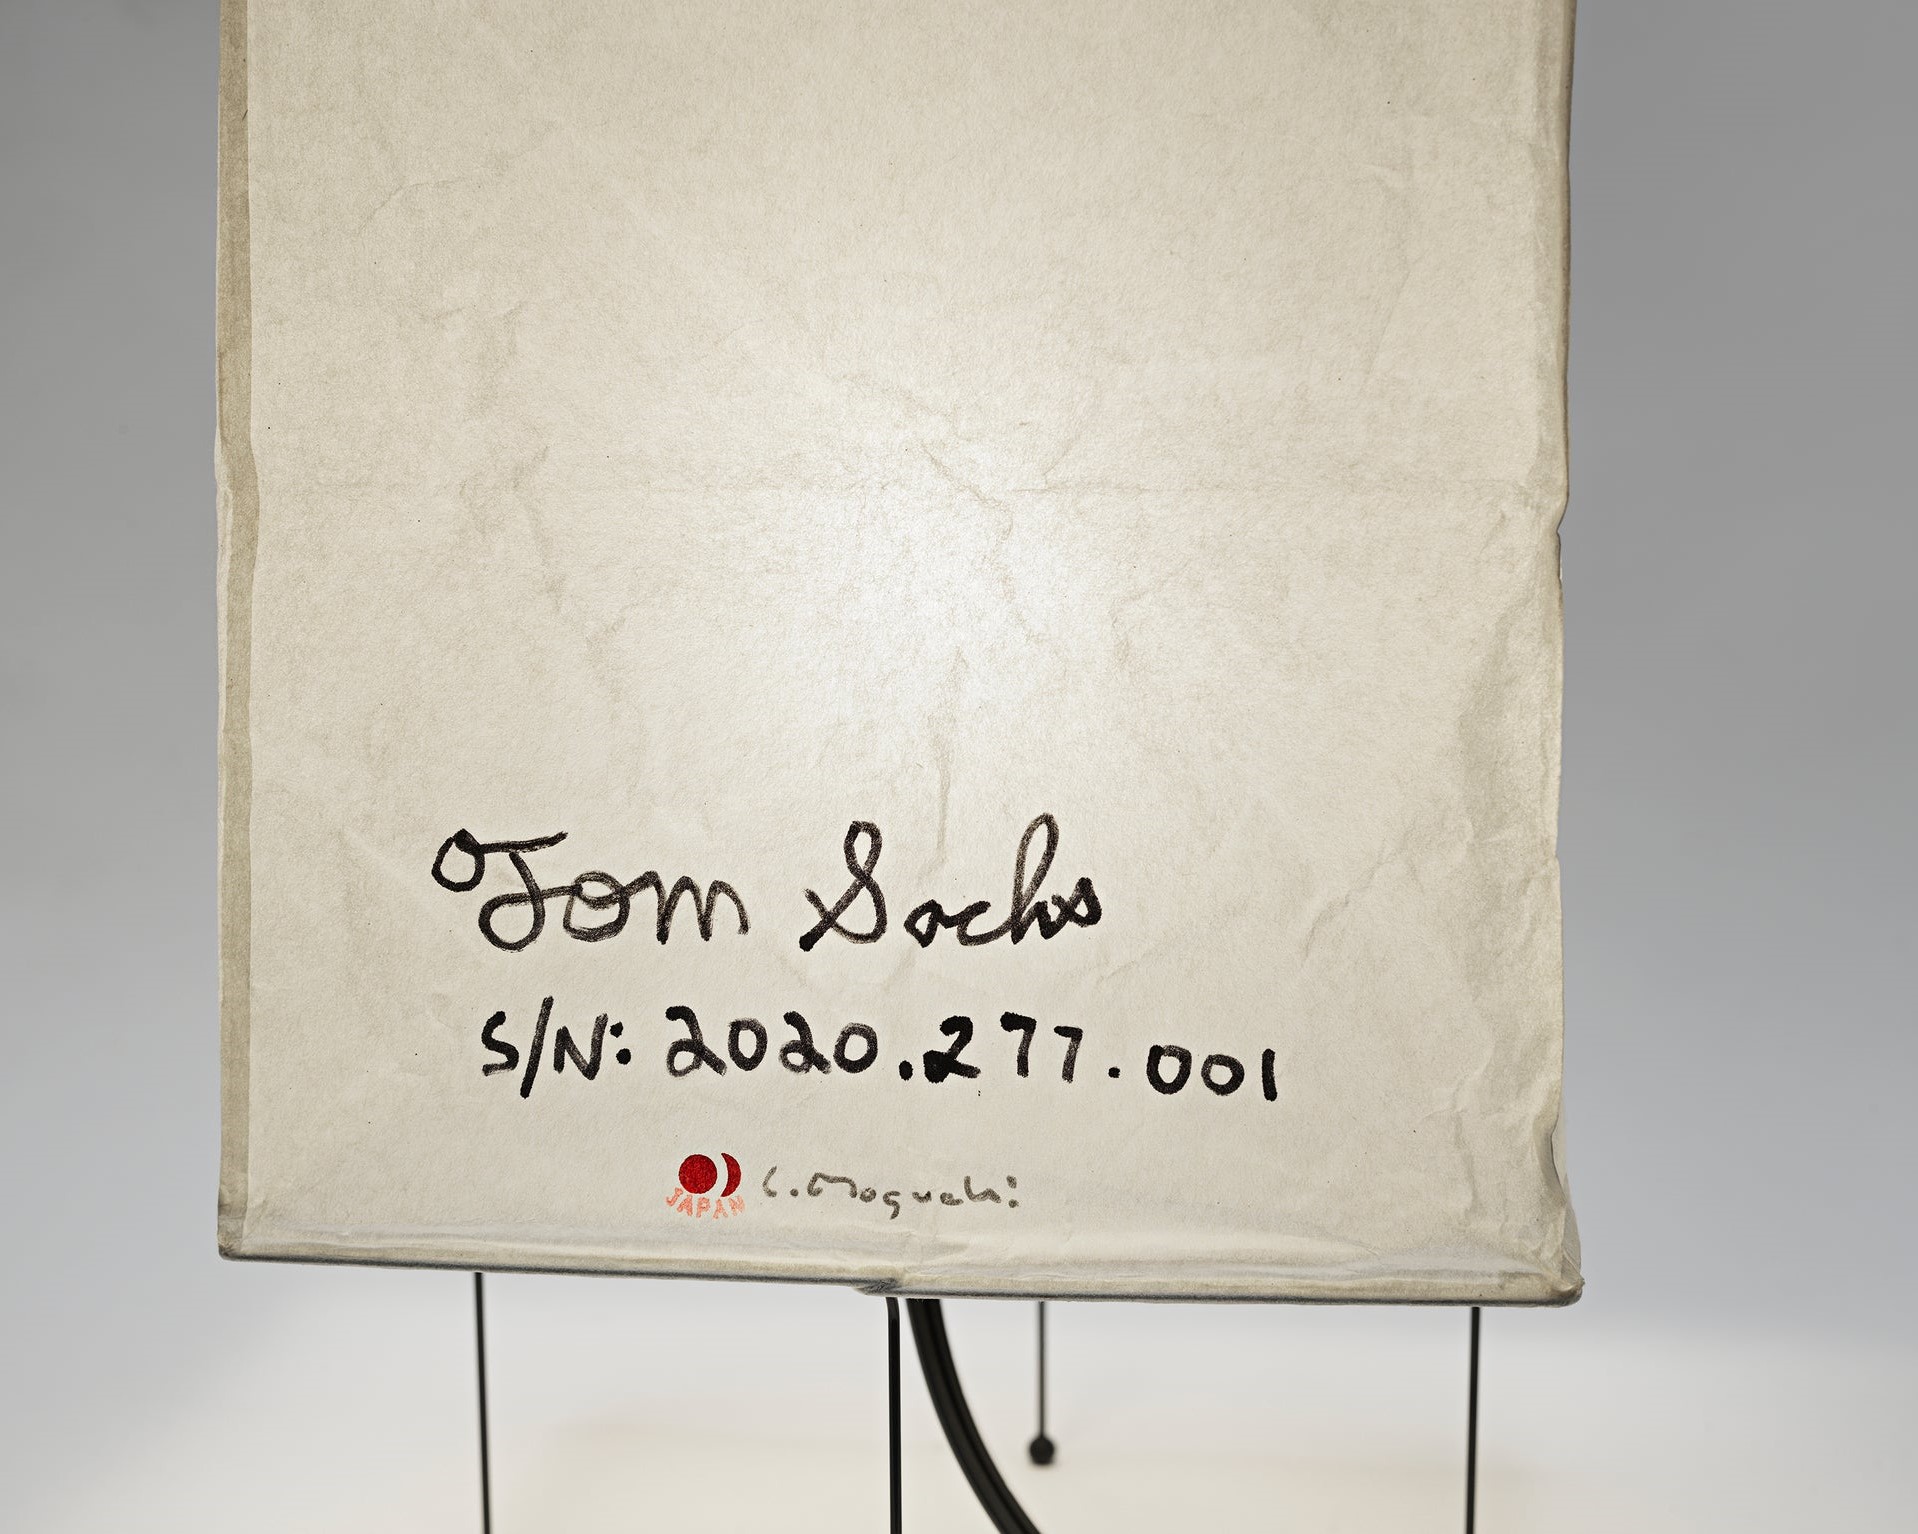 Tom Sachs
S/N: 2020.277.001
JAPAN I. Noguchi